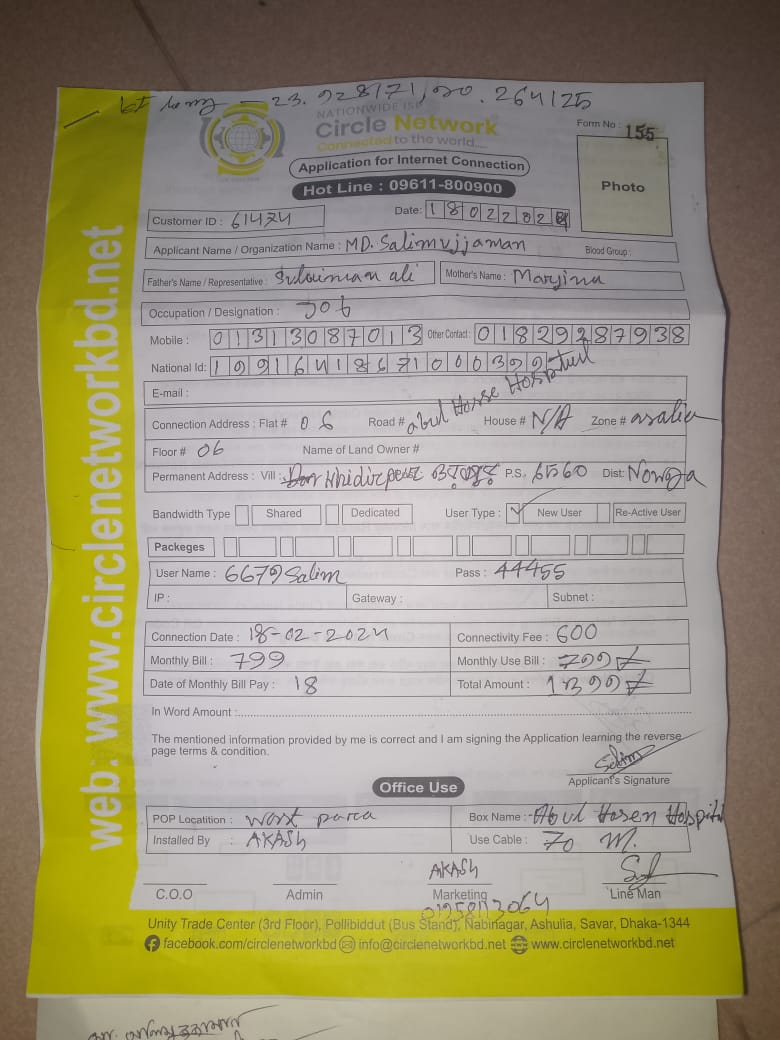 23. 928171, 20. 264125
NATIONWIDE ISP
Circle Network
Connected to the world....
Form No : 155
Application for Internet Connection
Photo
Hot Line : 09611-800900
Customer ID : 61474
Date: 18022024
Applicant Name / Organization Name : MD. Salimujjaman
Blood Group :
Father's Name / Representative : Sulaiman ali
Mother's Name : Marjina
Occupation / Designation : Job
Mobile : 01313087013 Other Contact : 01829287938
National Id:
E-mail :
Connection Address : Flat # 06 Road # abul Hosse Hospital House # N/A Zone # asalia
Floor # 06 Name of Land Owner #
Permanent Address : Vill : Khidirpur P.S. 6560 Dist: Nowga
Bandwidth Type Shared Dedicated User Type : ✓ New User Re-Active User
Packeges
User Name : 6679Salim Pass : 44455
IP : Gateway : Subnet :
Connection Date : 18-02-2024 Connectivity Fee : 600
Monthly Bill : 799 Monthly Use Bill : 799/-
Date of Monthly Bill Pay : 18 Total Amount : 1399/-
In Word Amount :
The mentioned information provided by me is correct and I am signing the Application learning the reverse
page terms & condition.
Salim
Applicant's Signature
Office Use
POP Locatition : West para Box Name : Abul Hosen Hospital
Installed By : AKASH Use Cable : 70 M.
AKASH
C.O.O Admin Marketing Line Man
Unity Trade Center (3rd Floor), Pollibiddut (Bus Stand), Nabinagar, Ashulia, Savar, Dhaka-1344
facebook.com/circlenetworkbd info@circlenetworkbd.net www.circlenetworkbd.net
web: www.circlenetworkbd.net